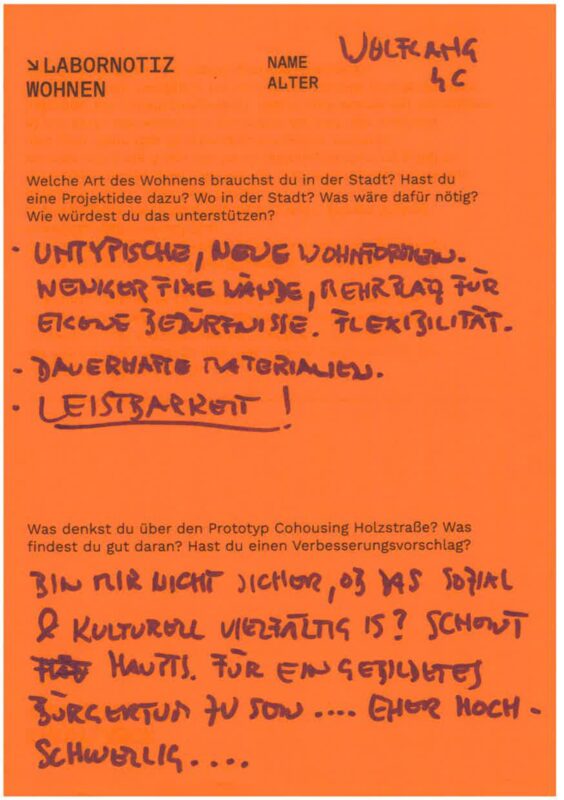 ↘ LABORNOTIZ
WOHNEN
NAME WOLFGANG
ALTER 46
Welche Art des Wohnens brauchst du in der Stadt? Hast du
eine Projektidee dazu? Wo in der Stadt? Was wäre dafür nötig?
Wie würdest du das unterstützen?
· UNTYPISCHE, NEUE WOHNFORMEN.
WENIGER FIXE WÄNDE, MEHR PLATZ FÜR
EIGENE BEDÜRFNISSE. FLEXIBILITÄT.
- DAUERHAFTE MATERIALIEN.
· LEISTBARKEIT!
Was denkst du über den Prototyp Cohousing Holzstraße? Was
findest du gut daran? Hast du einen Verbesserungsvorschlag?
BIN MIR NICHT SICHER, OB DAS SOZIAL
& KULTURELL VIELFÄLTIG IS? SCHEINT
HAUPTS. FÜR EIN GEBILDETES
BÜRGERTUM ZU SEIN .... EHER HOCH-
SCHWELLIG....